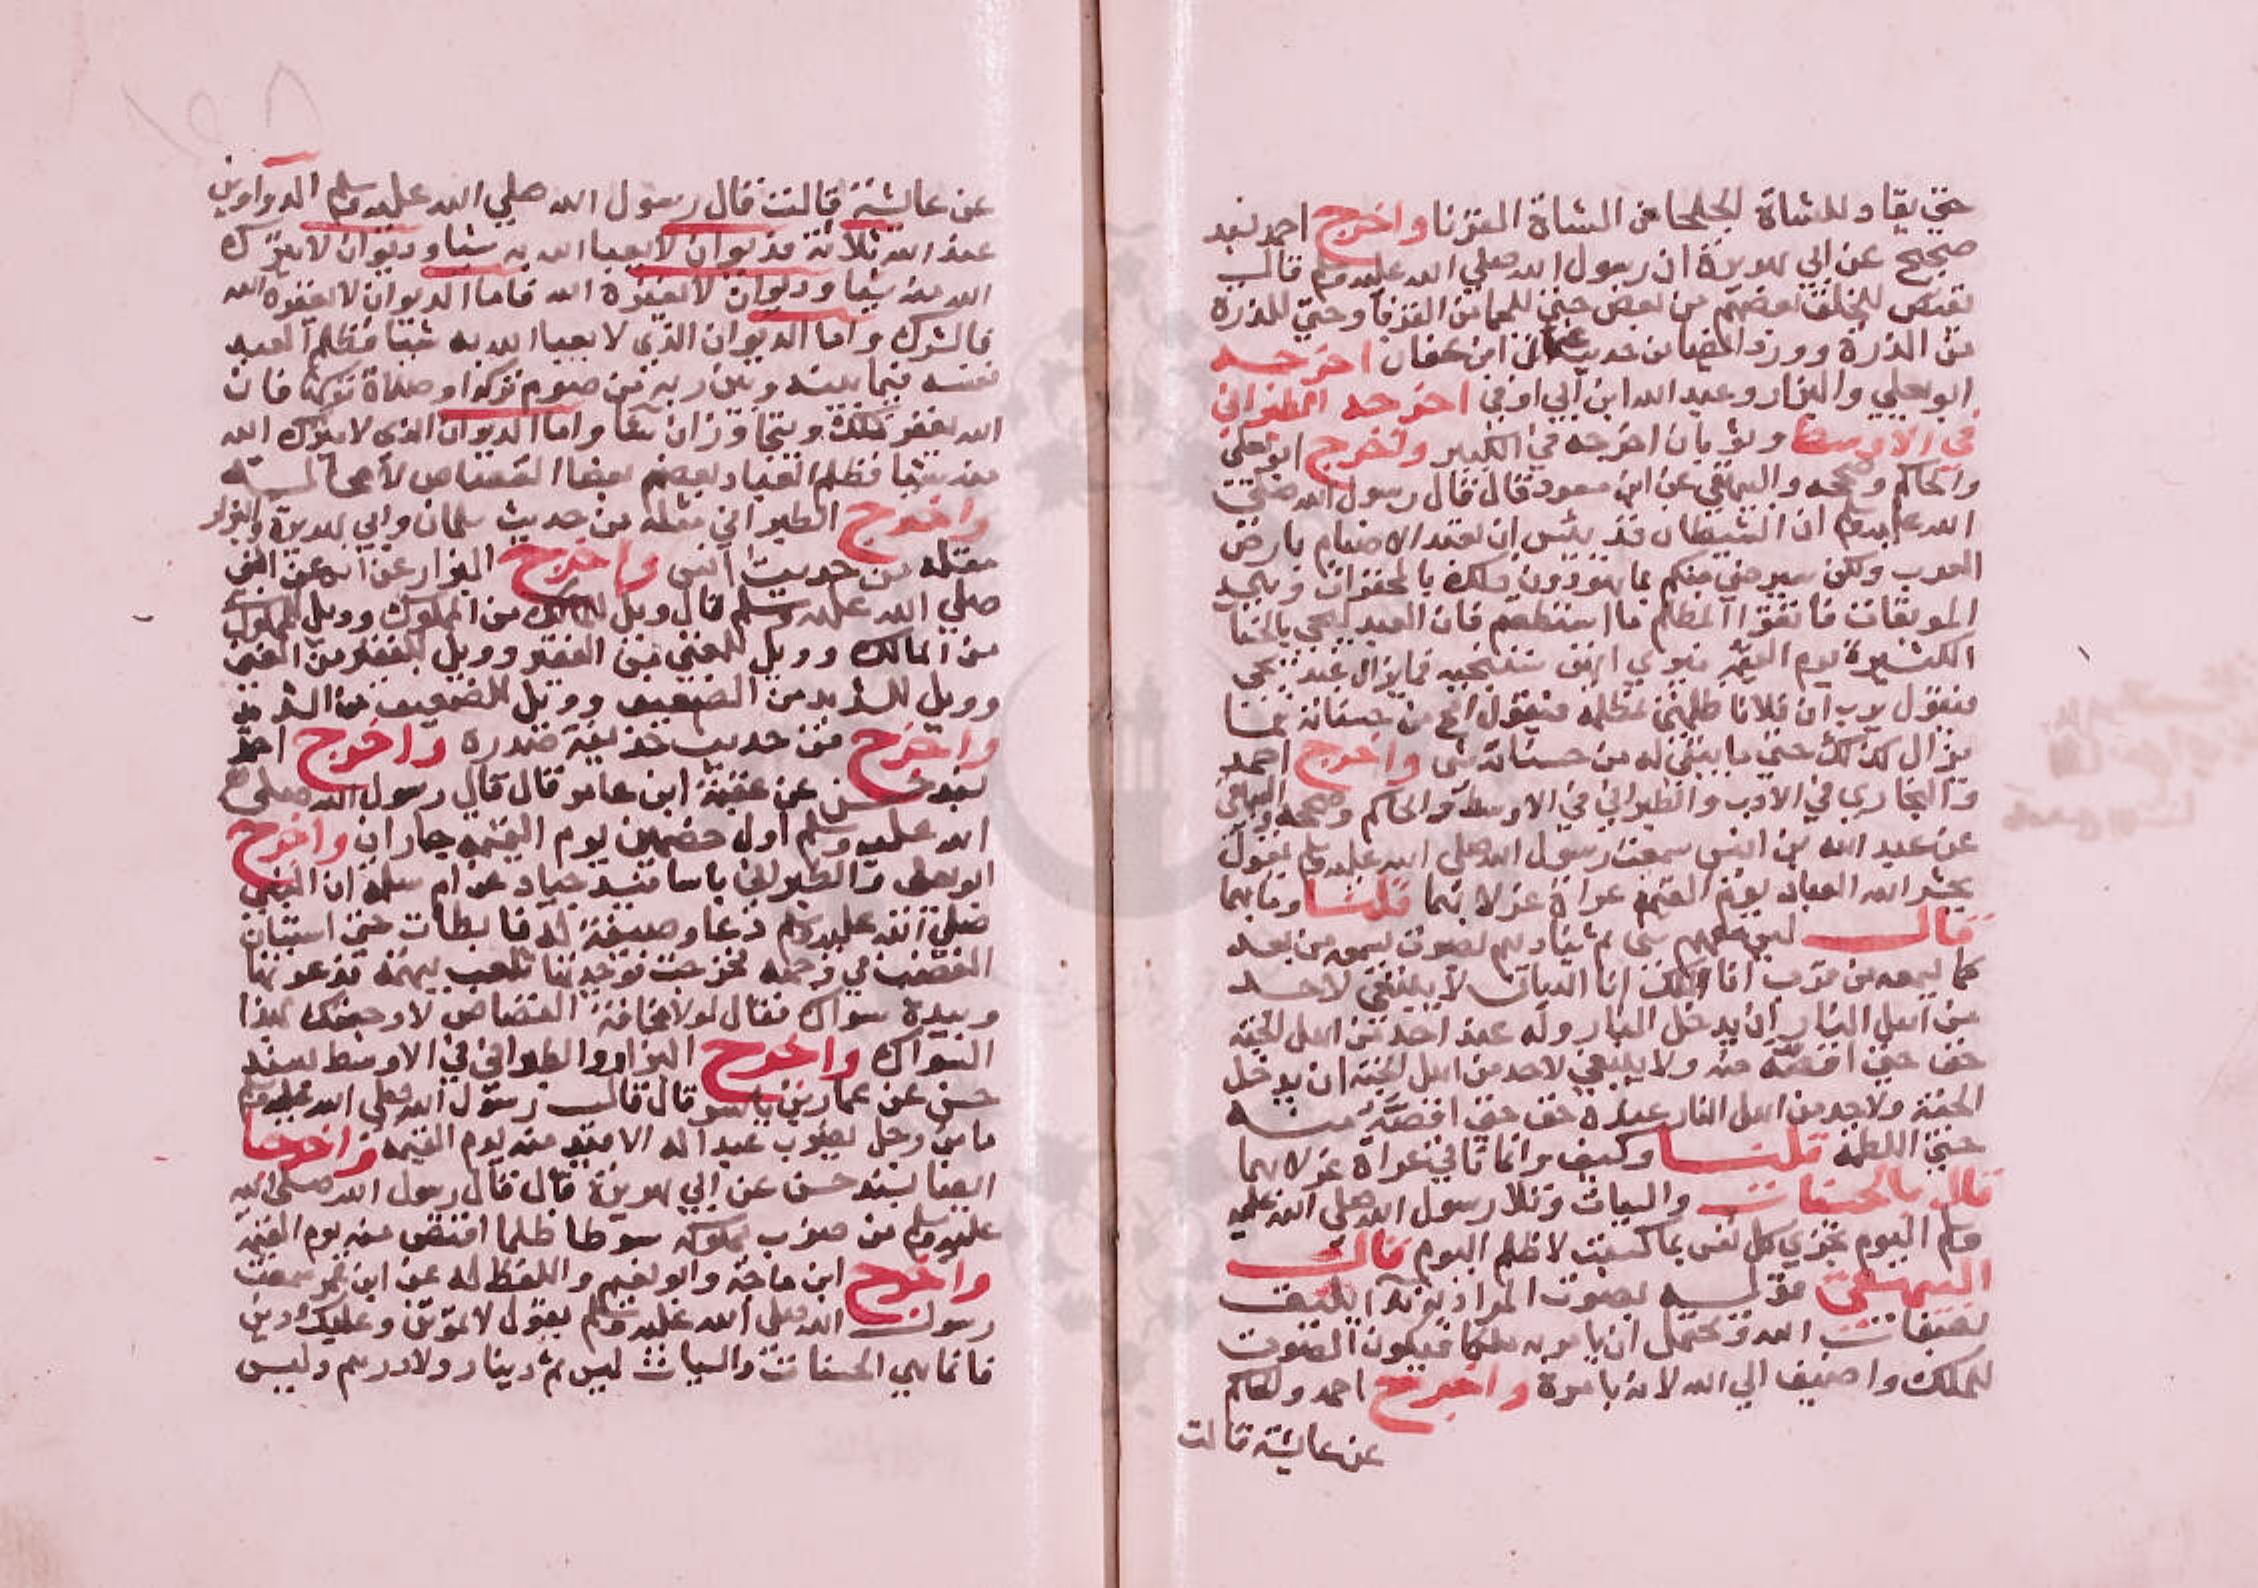 حتي يقاد للشاة الجلحا من الشاة القرنا واخرج احمد بسند
صحيح عن ابي هريرة ان رسول الله صلي الله عليه وسلم قال
تقتص للخلق بعضهم من بعض حتي للجما من القرنا وحتي للذرة
من الذرة وورد ايضا من حديث عثمان ابن عفان اخرجه
ابو يعلي والبزار وعبد الله ابن ابي اوفي اخرجه الطبراني
في الاوسط وثوبان اخرجه في الكبير واخرج ابو يعلي
والحاكم وصححه والبيهقي عن ابن مسعود قال قال رسول الله صلي
الله عليه وسلم ان الشيطان قد يئس ان تعبد الاصنام بارض
العرب ولكن سيرضي منكم بما هو دون ذلك بالمحقرات وهي
الموبقات فاتقوا المظلم ما استطعتم فان العبد يجي بالحسنا
الكثيرة يوم القيمة يري انهن ستنجيه فما يزال عبد يجي
فيقول يرب ان فلانا ظلمني مظلمة فيقول امح من حسناته فما
يزال كذلك حتي ما يبقي له من حسناته شي واخرج احمد
والبخاري في الادب والطبراني في الاوسط والحاكم وصححه والبيهقي
عن عبد الله بن انيس سمعت رسول الله صلي الله عليه وسلم يقول
يحشر الله العباد يوم القيمة عراة غرلا بهما قلنا وما بهما
قال ليس معهم شي ثم يناديهم بصوت يسمعه من بعد
كما يسمعه من قرب انا الملك انا الديان لا ينبغي لاحد
من اهل النار ان يدخل النار وله عند احد من اهل الجنة
حق حتي اقصه منه ولا ينبغي لاحد من اهل الجنة ان يدخل
الجنة ولاحد من اهل النار عنده حق حتي اقصه منه
حتي اللطمة قلنا وكيف وانما ناتي عراة غرلا بهما
قال بالحسنات والسيات وتلا رسول الله صلي الله عليه
وسلم اليوم تجزي كل نفس بما كسبت لا ظلم اليوم قال
البيهقي قوله بصوت المراد به ندا يليق
بصفات الله ويحتمل ان يامر به ملكا فيكون الصوت
للملك واضيف الي الله لانه بامره واخرج احمد والحاكم
عن عايشة قالت
عن عايشة قالت قال رسول الله صلي الله عليه وسلم الدواوين
عند الله ثلاثة فديوان لا يعبا الله به شيا وديوان لا يترك
الله منه شيا وديوان لا يغفره الله فاما الديوان لا يغفره الله
فالشرك واما الديوان الذي لا يعبا الله به شيا فظلم العبد
نفسه فيما بينه وبين ربه من صوم تركه او صلاة تركها فان
الله يغفر ذلك ويتجاوز ان شا واما الديوان الذي لا يترك الله
منه شيا فظلم العباد بعضهم بعضا القصاص لا محالة
واخرج الطبراني مثله من حديث سلمان وابي هريرة والبزار
مثله من حديث انس واخرج البزار عن انس عن النبي
صلي الله عليه وسلم قال ويل للمالك من المملوك وويل للمملوك
من المالك وويل للغني من الفقير وويل للفقير من الغني
وويل للشديد من الضعيف وويل للضعيف من الشديد
واخرج من حديث حذيفة صدره واخرج احمد
بسند حسن عن عقبة ابن عامر قال قال رسول الله صلي
الله عليه وسلم اول خصمين يوم القيمة جاران واخرج
ابو يعلي والطبراني باسانيد جياد عن ام سلمة ان النبي
صلي الله عليه وسلم دعا وصيفة له فابطات حتي استبان
الغضب في وجهه فخرجت فوجدتها تلعب ببهمة فدعوتها
وبيده سواك فقال لولا مخافة القصاص لاوجعتك بهذا
السواك واخرج البزار والطبراني في الاوسط بسند
حسن عن عمار بن ياسر قال قال رسول الله صلي الله عليه وسلم
ما من رجل يضرب عبدا له الا اقيد منه يوم القيمة واخرجا
ايضا بسند حسن عن ابي هريرة قال قال رسول الله صلي الله
عليه وسلم من ضرب مملوكه سوطا ظلما اقتص منه يوم القيمة
واخرج ابن ماجة وابو نعيم واللفظ له عن ابن عمر سمعت
رسول الله صلي الله عليه وسلم يقول لا تموتن وعليك دين
فانما هي الحسنات والسيات ليس ثم دينار ولا درهم وليس